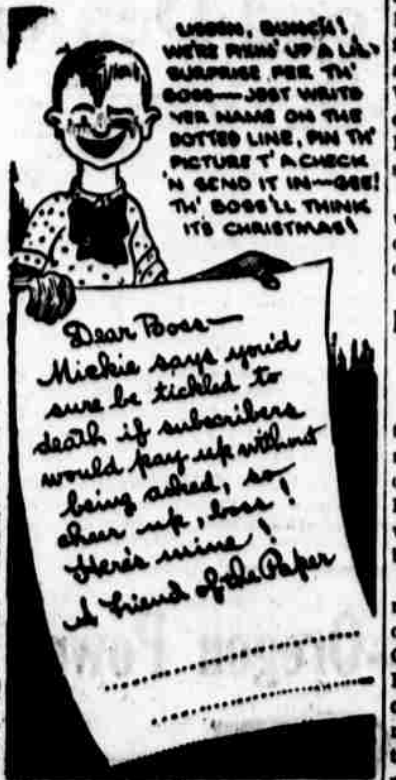 LISSEN, BUNCH!
WE'RE FIXIN' UP A LIL'
SURPRISE FER TH'
BOSS—JEST WRITE
YER NAME ON THE
DOTTED LINE, PIN TH'
PICTURE T' A CHECK
'N SEND IT IN—GEE!
TH' BOSS'LL THINK
IT'S CHRISTMAS!
Dear Boss—
Mickie says you'd
sure be tickled to
death if subscribers
would pay up without
being asked, so
cheer up, boss!
Here's mine!
A Friend of the Paper